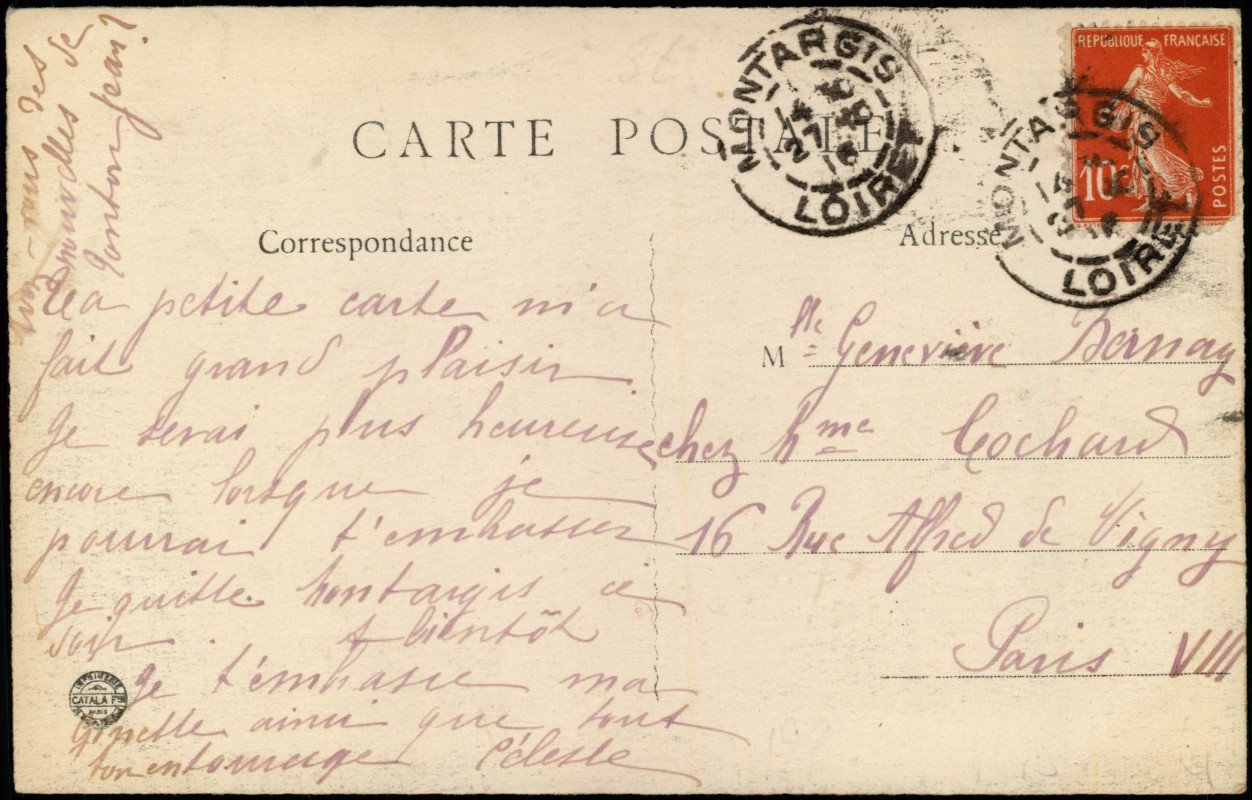 CARTE POSTALE
Correspondance
Adresse
RÉPUBLIQUE FRANÇAISE
10c
POSTES
MONTARGIS
LOIRET
MONTARGIS
LOIRET
-vous des
nouvelles de
tonton Jean?
Ta petite carte m'a
fait grand plaisir
Je serai plus heureuse
encore lorsque je
pourrai t'embrasser
Je quitte Montargis ce
soir. A bientôt
Je t'embrasse ma
Ginette ainsi que tout
ton entourage Céleste
Mlle Geneviève Bernay
chez Mme Cochard
16 Rue Alfred de Vigny
Paris VIII
IMPRIMERIE
CATALA Fres
PARIS